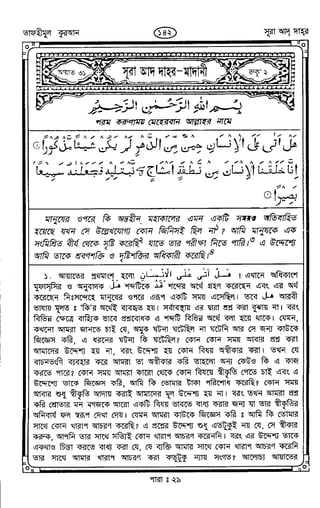 তাফহীমুল কুরআন
১৪২
সূরা আদ্ দাহর
আয়াত ৩১
সূরা আদ দাহর-মাদানী
রুকূ' ২
بِسْمِ اللهِ الرَّحْمٰنِ الرَّحِيْمِ
পরম করুণাময় মেহেরবান আল্লাহর নামে
هَلْ اَتٰى عَلَى الْاِنْسَانِ حِيْنٌ مِّنَ الدَّهْرِ لَمْ يَكُنْ شَيْئًا مَّذْكُوْرًا ①
اِنَّا خَلَقْنَا الْاِنْسَانَ مِنْ نُّطْفَةٍ اَمْشَاجٍ نَّبْتَلِيْهِ فَجَعَلْنٰهُ سَمِيْعًا
بَصِيْرًا ②
মানুষের ওপরে কি অন্তহীন মহাকালের এমন একটি সময়ও অতিবাহিত
হয়েছে যখন সে উল্লেখযোগ্য কোন জিনিসই ছিল না? আমি মানুষকে এক
সংমিশ্রিত বীর্য থেকে সৃষ্টি করেছি যাতে তার পরীক্ষা নিতে পারি। এ উদ্দেশ্যে
আমি তাকে শ্রবণশক্তি ও দৃষ্টিশক্তির অধিকারী করেছি।
১. আয়াতের প্রথমাংশ হলো هَلْ اَتٰى عَلَى الْاِنْسَانِ। এখানে অধিকাংশ
মুফাস্‌সির ও অনুবাদক هل শব্দটিকে قد শব্দের অর্থে গ্রহণ করেছেন এবং এর অর্থ
করেছেন নিঃসন্দেহে মানুষের ওপরে এরূপ একটি সময় এসেছিল। তবে هل আরবী
ভাষায় মূলত 'কি'র অর্থেই ব্যবহৃত হয়। সর্বাবস্থায় এর দ্বারা প্রশ্ন করা বুঝায় না। বরং
বিভিন্ন ক্ষেত্রে বাহ্যিকভাবে প্রশ্নবোধক এ শব্দটি বিভিন্ন অর্থে বলা হয়ে থাকে। যেমন,
কখনো আমরা জানতে চাই যে, অমুক ঘটনা ঘটেছিল না ঘটেনি আর সে জন্য কাউকে
জিজ্ঞেস করি, এ ধরনের ঘটনা কি ঘটেছিল? কোন কোন সময় আবার প্রশ্ন করা
আমাদের উদ্দেশ্য হয় না, বরং উদ্দেশ্য হয় কোন বিষয় অস্বীকার করা। তখন যে
বাচনভংগী ব্যবহার করে আমরা তা অস্বীকার করি তাহলো অন্য কেউও কি এ কাজ
করতে পারে? কোন সময় আমরা কারো থেকে কোন বিষয়ে স্বীকৃতি পেতে চাই এবং এ
উদ্দেশ্যে তাকে জিজ্ঞেস করি, আমি কি তোমার টাকা পরিশোধ করেছি? কোন সময়
আবার শুধু স্বীকৃতি আদায় করাই আমাদের মূল উদ্দেশ্য হয় না। বরং তখন আমরা প্রশ্ন
করি শ্রোতার মন মগজকে আরো একটি বিষয় ভাবতে বাধ্য করার জন্য যা তার স্বীকৃতির
অনিবার্য ফল স্বরূপ দেখা দেয়। যেমন আমরা কাউকে জিজ্ঞেস করি ঃ আমি কি তোমার
সাথে কোন খারাপ আচরণ করেছি? এ প্রশ্নের উদ্দেশ্য শুধু এতটুকুই নয় যে, সে স্বীকার
করুক, আপনি তার সাথে সত্যিই কোন খারাপ আচরণ করেননি। বরং এর উদ্দেশ্য তাকে
একথাও চিন্তা করতে বাধ্য করা যে, যে ব্যক্তি আমার সাথে কোন খারাপ আচরণ করেনি
তার সাথে আমার খারাপ আচরণ করা কতটুকু ন্যায় সংগত? আলোচ্য আয়াতের
পারা ঃ ২৯